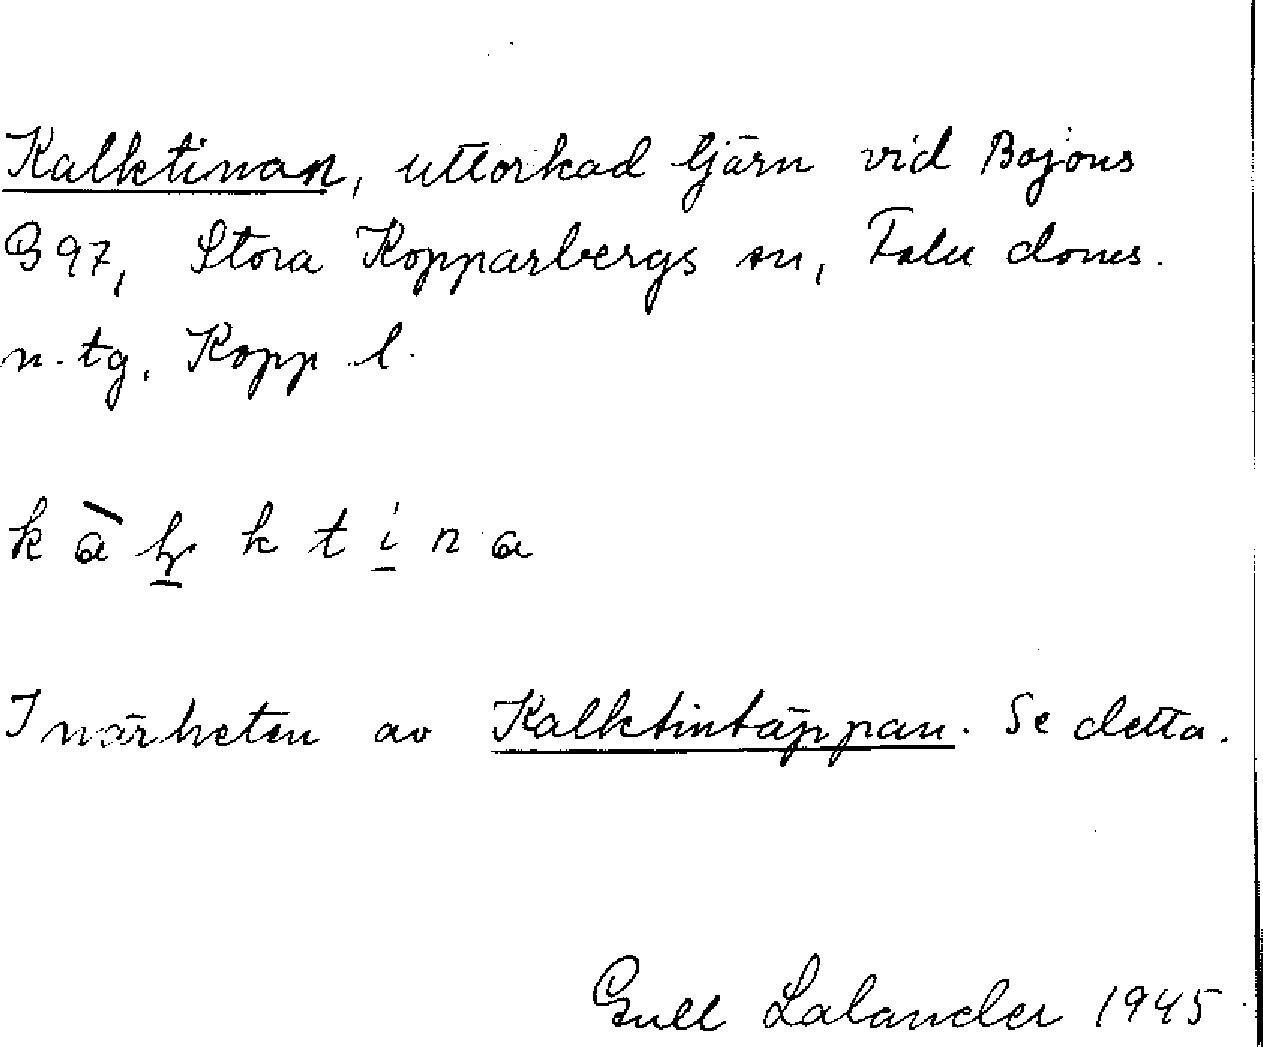 Kalktinan, uttorkad tjärn vid Bojons
B 97, Stora Kopparbergs sn, Falu doms.
n. tg. Kopp l.
k a k t i n a
I närheten av Kalktintäppan. Se detta.
Gull Lalander 1945